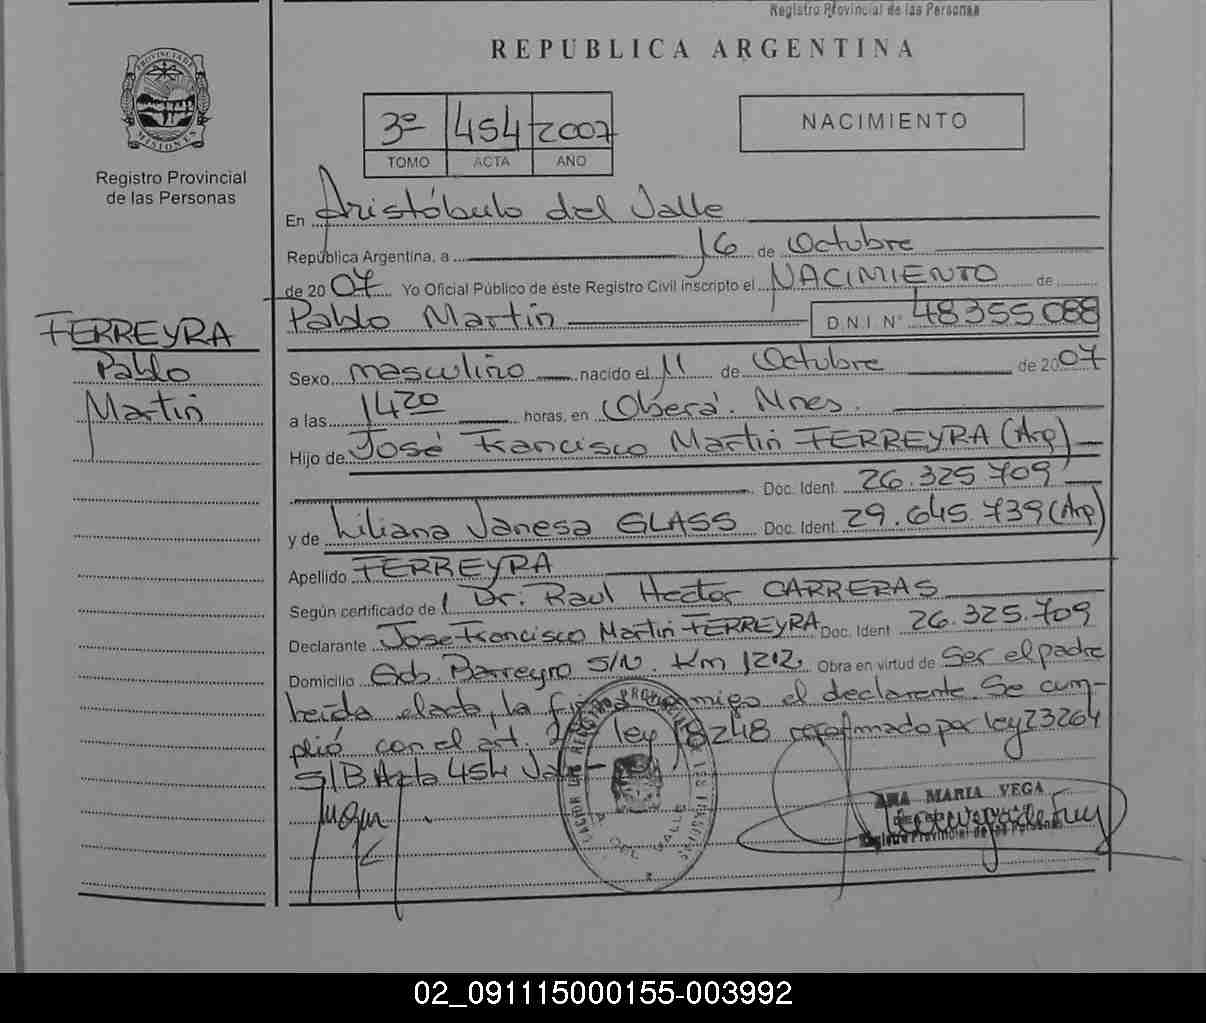 Registro Provincial de las Personas
REPUBLICA ARGENTINA
PROVINCIA DE MISIONES
Registro Provincial
de las Personas
3º 454 2007
TOMO ACTA AÑO
NACIMIENTO
En Aristóbulo del Valle
República Argentina, a 16 de Octubre
de 2007 Yo Oficial Público de éste Registro Civil inscripto el NACIMIENTO de
Pablo Martín D.N.I. Nº 48355.088
FERREYRA
Pablo
Martín
Sexo masculino nacido el 11 de Octubre de 2007
a las 14 20 horas, en Oberá. Mnes.
Hijo de José Francisco Martín FERREYRA (Arg)
Doc. Ident. 26.325.709
y de Liliana Vanesa GLASS Doc. Ident. 29.645.739 (Arg)
Apellido FERREYRA
Según certificado de Dr. Raul Hector CARRERAS
Declarante Jose Francisco Martín FERREYRA Doc. Ident 26.325.709
Domicilio Gdb. Barreyro S/N. Km 1212. Obra en virtud de Ser el padre
leída el acta, la conmigo el declarante. Se cum-
plió con el art. ley 18248 reformado por ley 23264
S/B Acta 454 Vale
ANA MARIA VEGA
Registro Provincial de las Personas
02_091115000155-003992